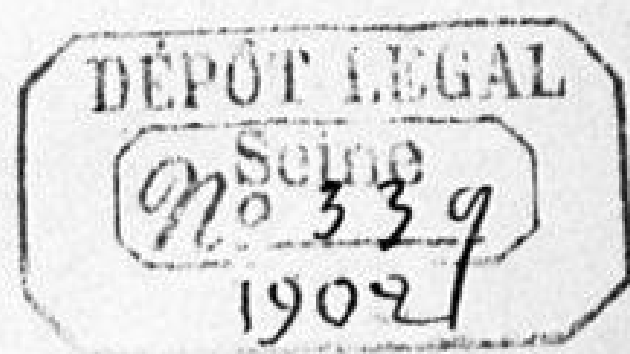 DÉPÔT LEGAL
Seine
Nº 339
1902